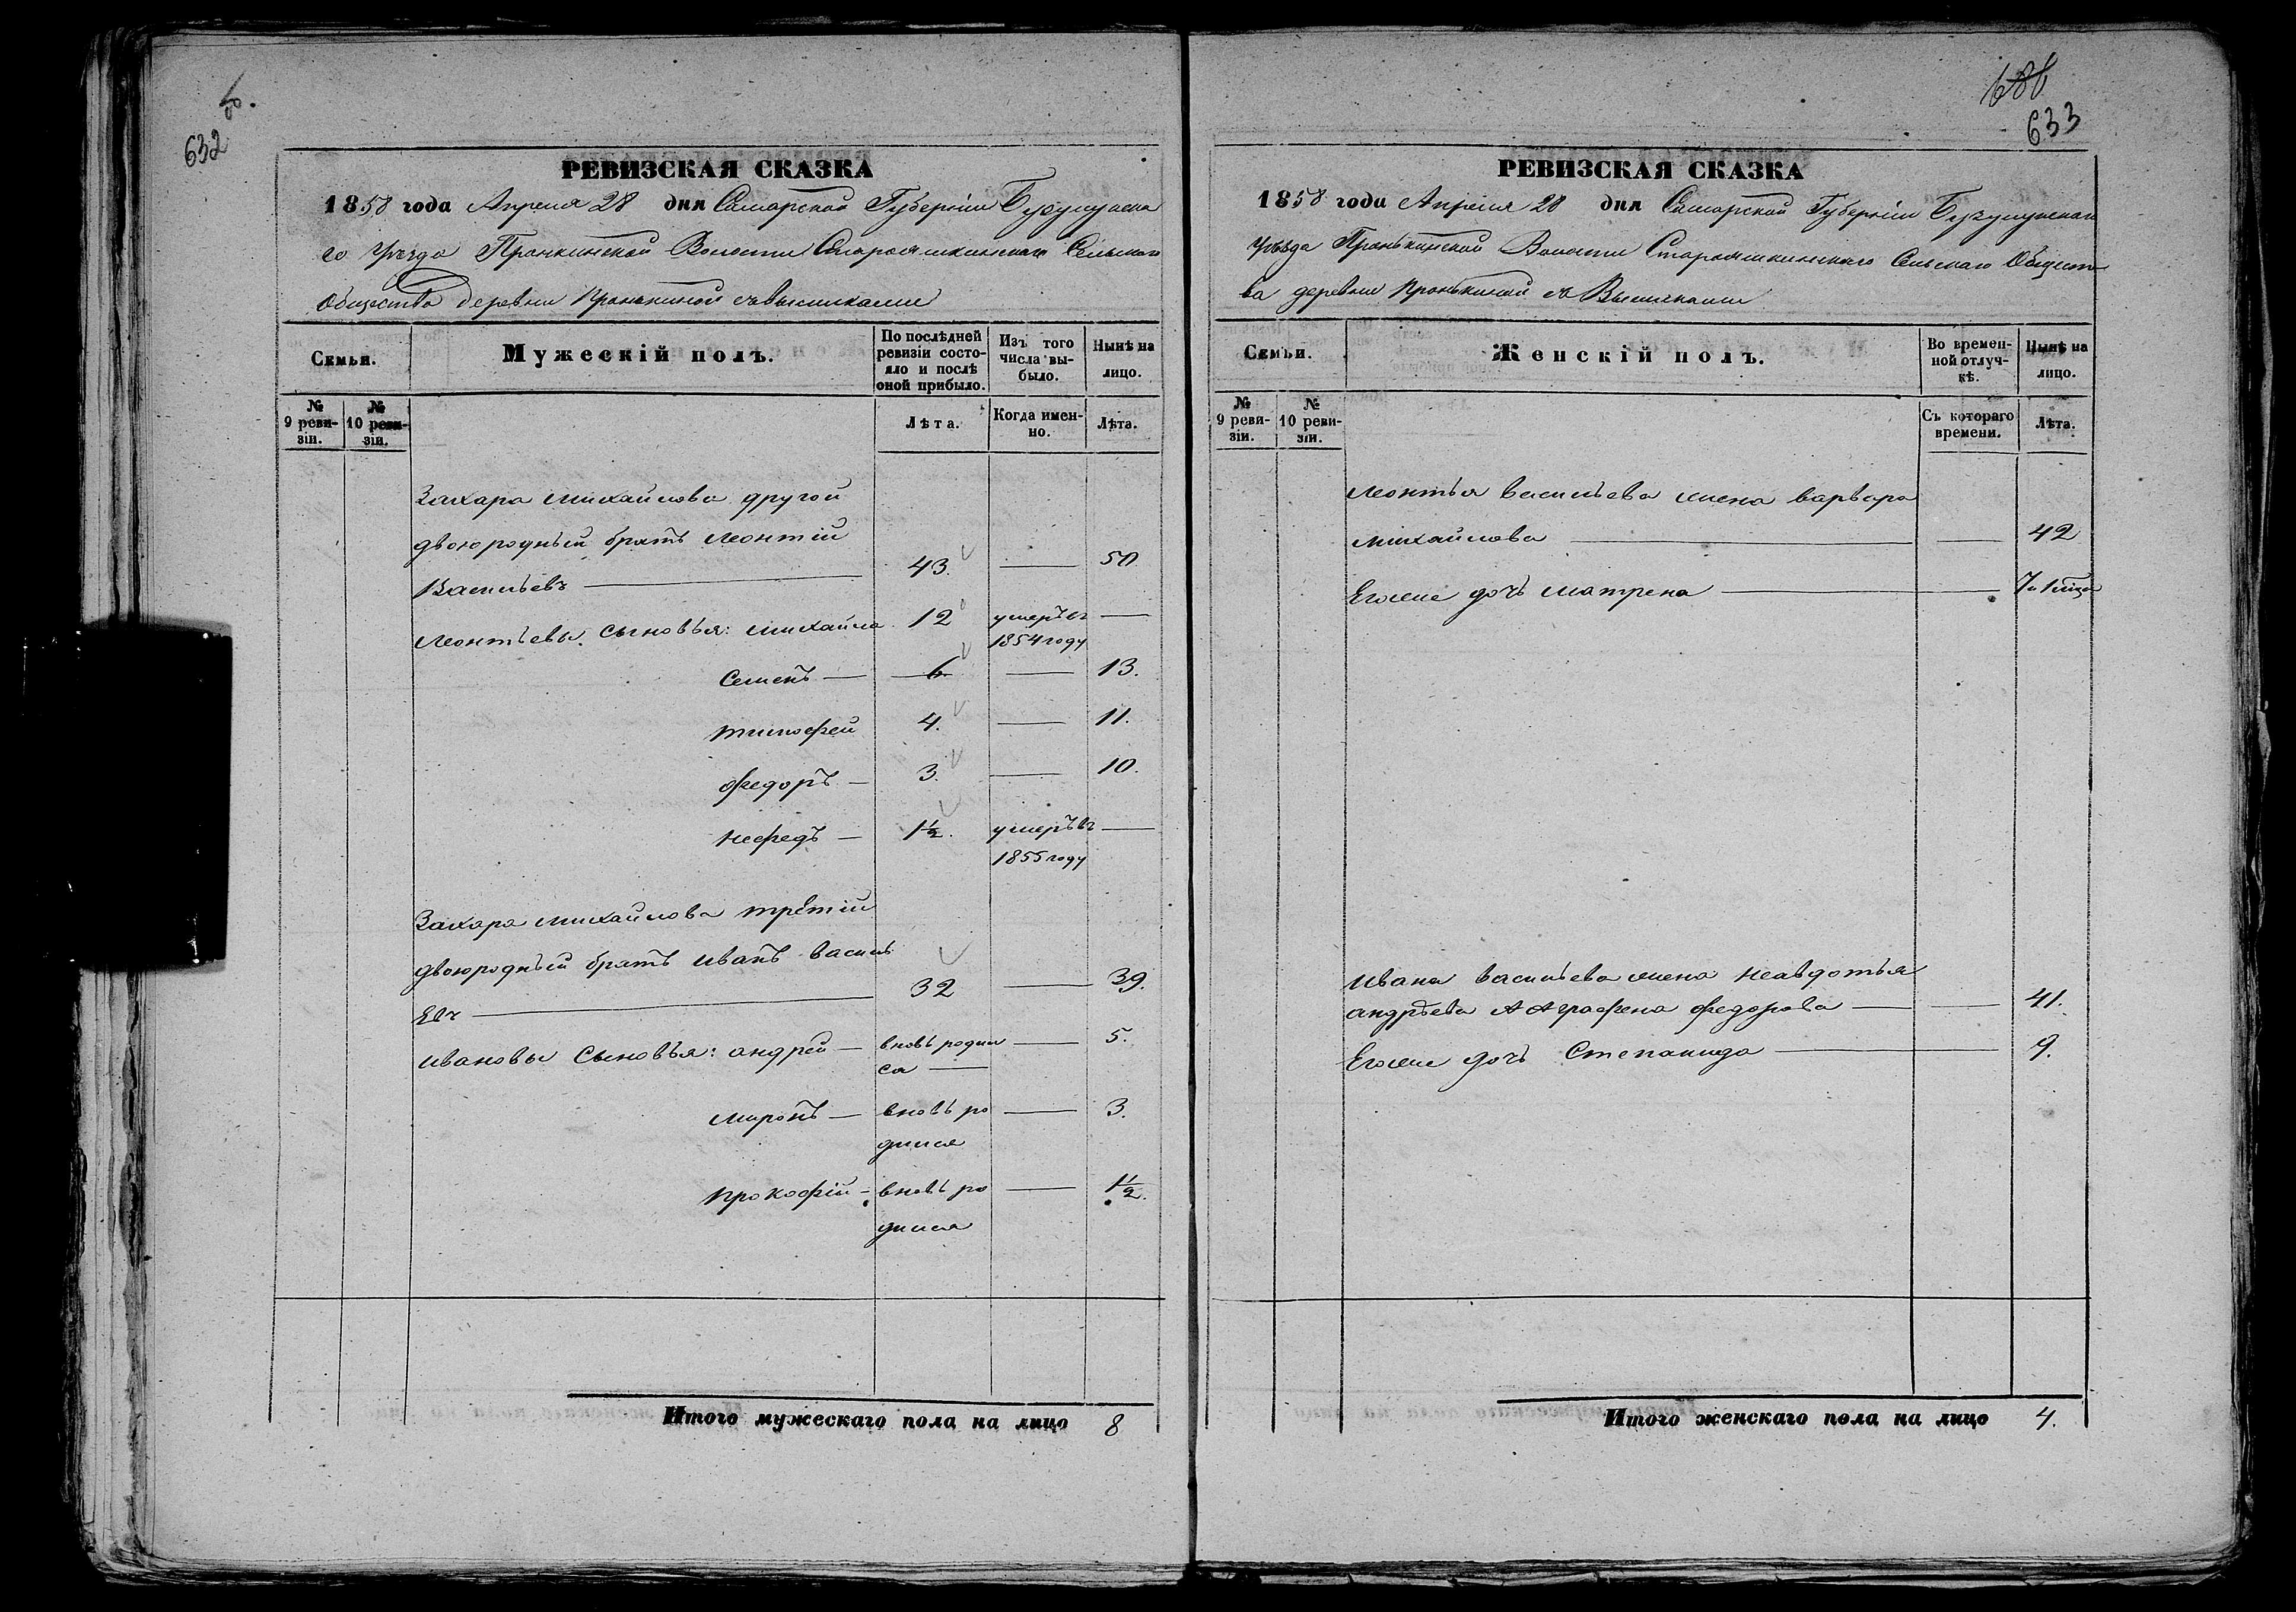 632
РЕВИЗСКАЯ СКАЗКА
1858 года Апреля 28 дня Самарской Губерніи Бузулуцка
го уѣзда Пронкинской Волости Староашкинскаго Сельскаго
Общества деревни Пронькиной съ выселками
Семьи.
Мужескій полъ.
По послѣдней ревизіи состояло и послѣ оной прибыло.
Изъ того числа выбыло.
Нынѣ на лицо.
№ 9 ревизіи.
№ 10 ревизіи.
Лѣта.
Когда именно.
Лѣта.
Захара Михайлова другой
двоюродный братъ Леонтій
Васильевъ 43. 50
Леонтьевы сыновья: Михайла 12 умеръ въ
1854 году
Семенъ 6 13.
Тимофей 4. 11.
Федоръ 3. 10.
Нефедъ 1½. умеръ въ
1855 году
Захара Михайлова третій
двоюродный братъ Иванъ Василь
евъ 32 39.
Ивановы сыновья: Андрей вновь родил 5.
ся
Миронъ вновь ро 3.
дился
Прокофій вновь ро 1½.
дился
Итого мужескаго пола на лицо 8
633
РЕВИЗСКАЯ СКАЗКА
1858 года Апреля 28 дня Самарской Губерніи Бузулуцкаго
уѣзда Пронькинской Волости Староашкинскаго Сельскаго Общест
ва деревни Пронькиной съ Выселками
Семьи.
Женскій полъ.
Во временной отлучкѣ.
Нынѣ на лицо.
№ 9 ревизіи.
№ 10 ревизіи.
Съ котораго времени.
Лѣта.
Леонтья Васильева жена Варвара
Михайлова 42
Егоже дочь Матрена 7 и 1
Ивана Васильева жена Неавдотья
Андреева А Аграфена Федорова 41.
Егоже дочь Степанида 9.
Итого женскаго пола на лицо 4.